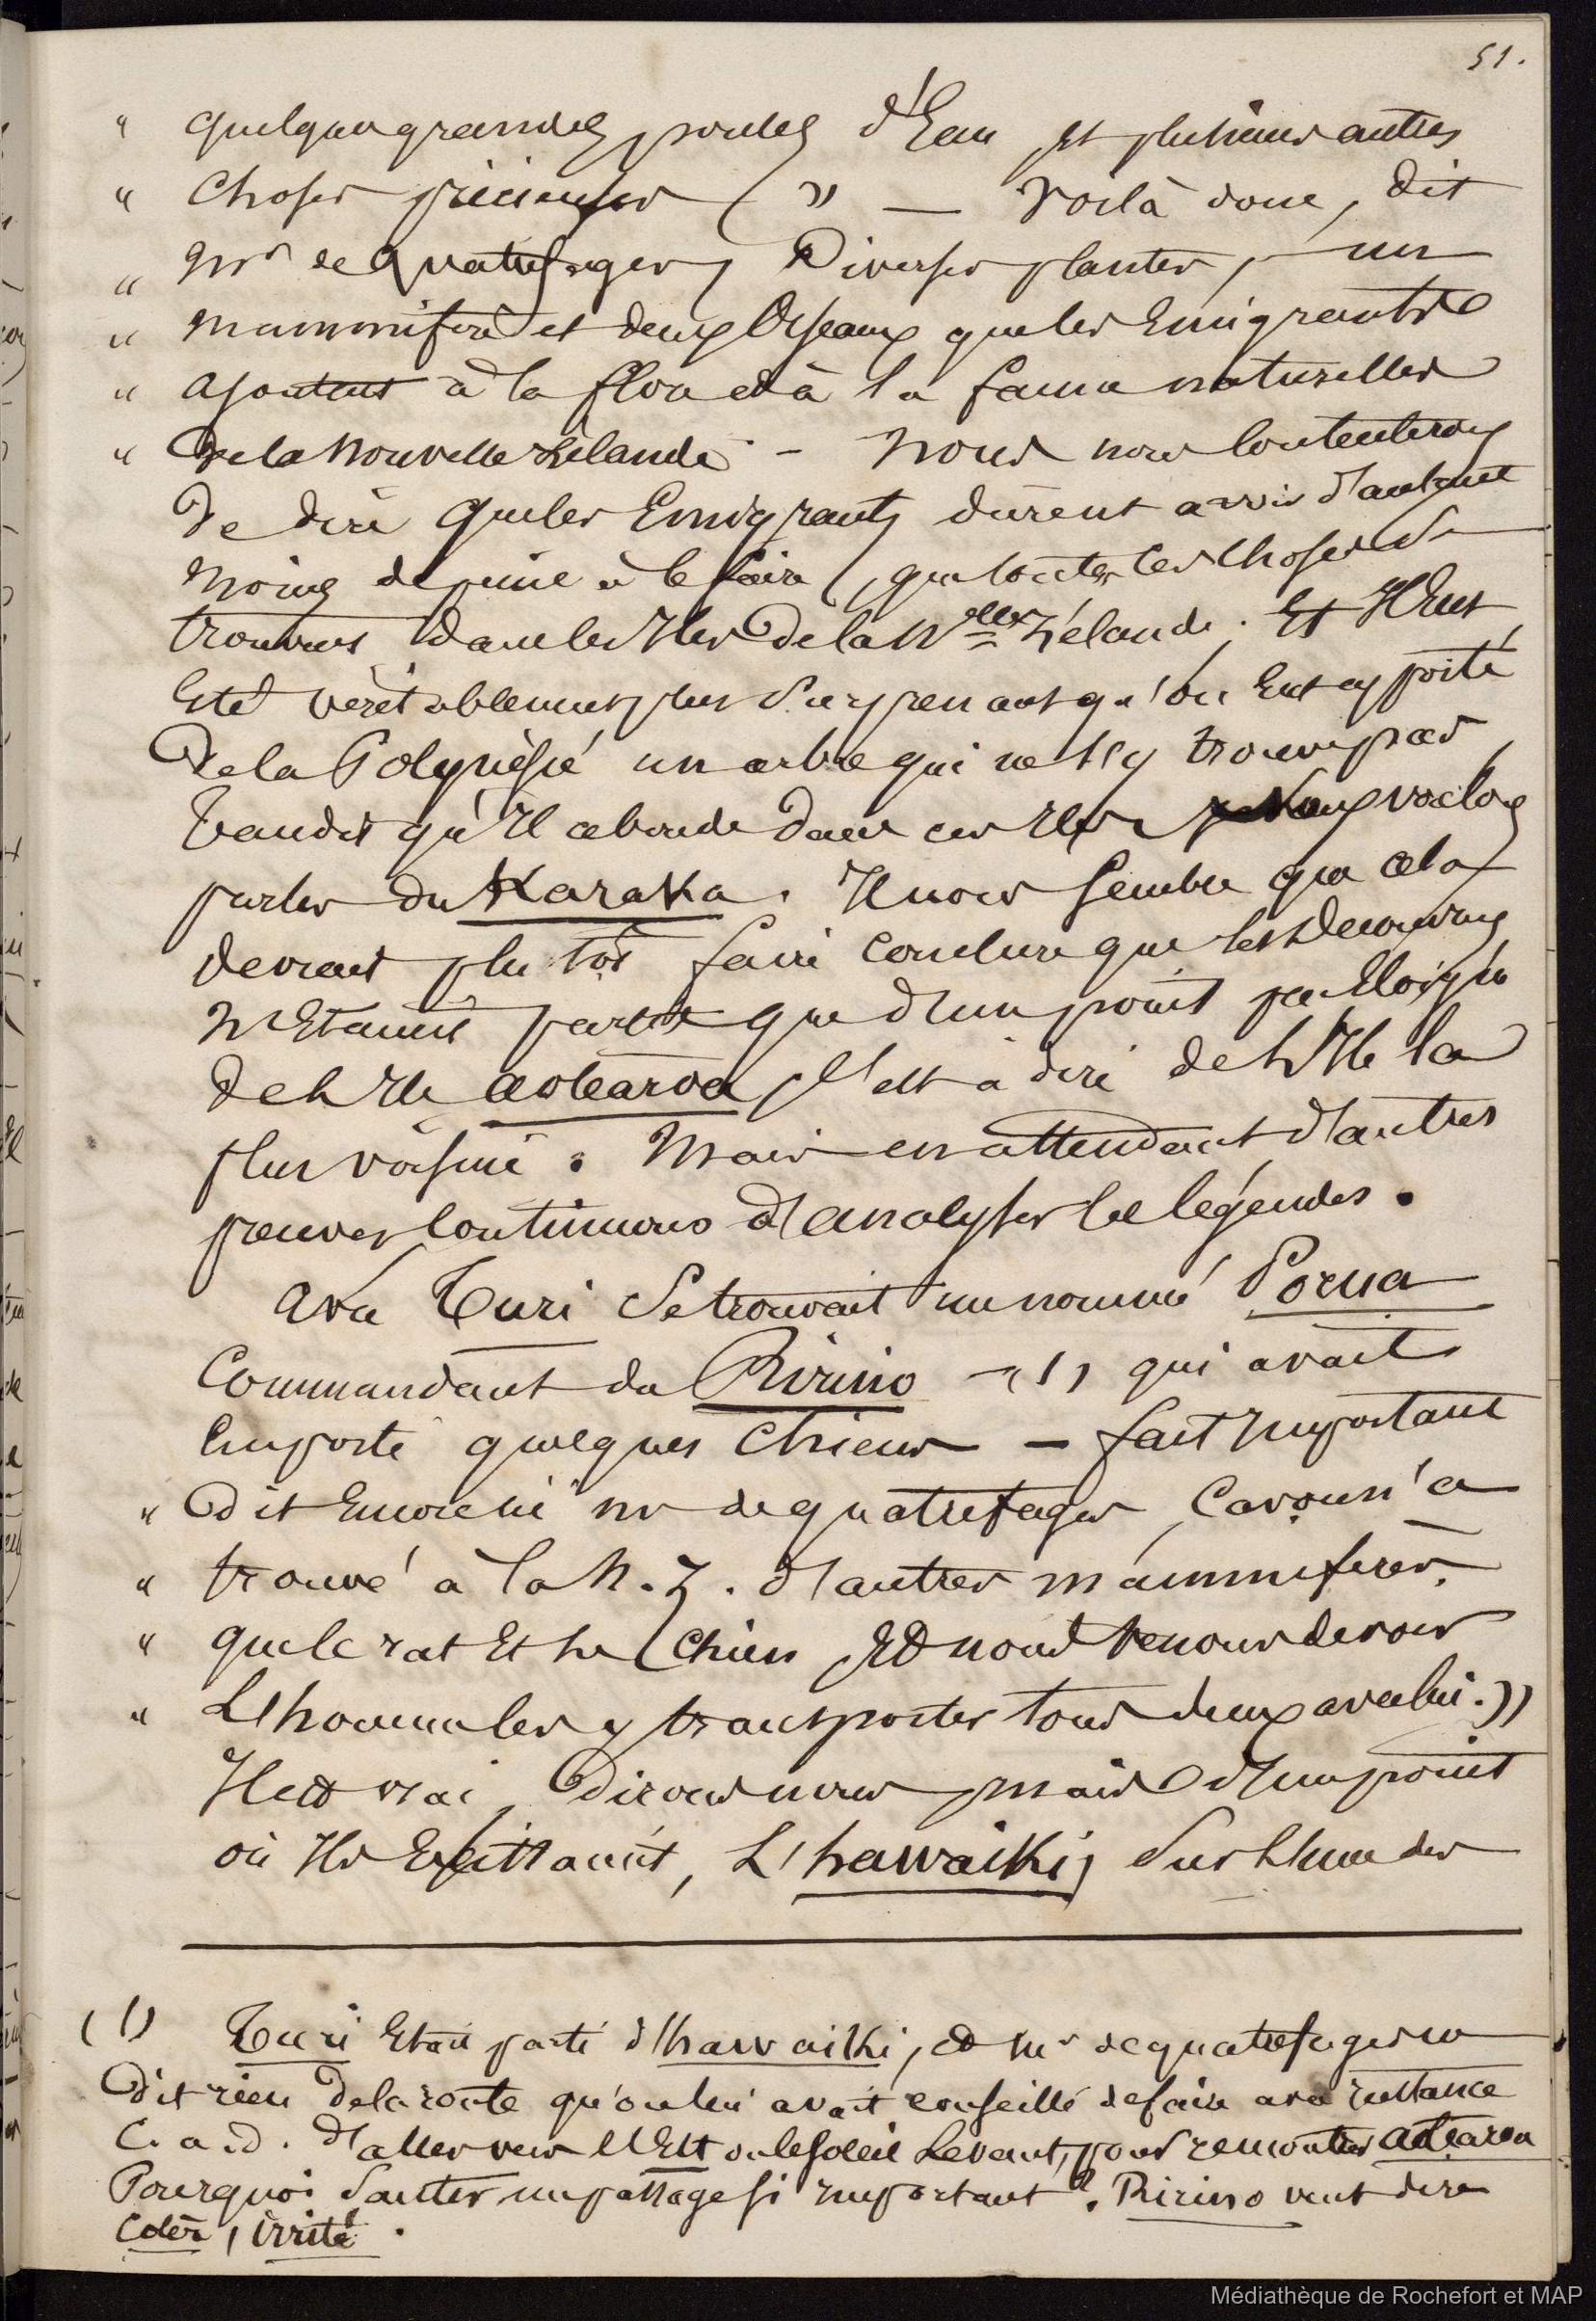 51.
" quelques grandes poules d'Eau et plusieurs autres
" Choses précieuses ( » — Voilà donc, dit
" Mr de Quatrefages, Diverses plantes, un
" mammifère et deux Oiseaux que les Emigrants
" ajoutent à la flore et à la faune naturelles
" De la Nouvelle Zélande - Nous nous Contenterons
De dire que les Emigrants dûrent avoir d'autant
moins de peine à le faire, que toutes les choses se
trouvent dans les Iles De la Nlle Zélande. Et Il Eut
Eté véritablement plus Surprenant qu'on Eut apporté
De la Polynésie un arbre qui ne s'y trouve pas,
Tandis qu'Il abonde Dans ces Iles nous voulons
parler du Karaka. Il nous Semble que cela
devrait plutôt faire Conclure que les Découvreurs
N'Etaient partis que d'un point peu Eloigné
De l'Ile aotearoa, C'est à dire de l'Ile la
plus voisine. Mais en attendant d'autres
preuves Continuons d'analyser les légendes.
Avec Turi Se trouvait un nommé Porua
Commandant du Ririno (1) qui avait
Emporté quelques Chiens — fait Important
" Dit Encore ici mr de quatrefages, Car on n'a
" trouvé à la N. Z. d'autres mammifères
" que le rat Et le Chien Et nous venons de voir
" L'homme les y transporter tous deux avec lui. »
Il est vrai, Dirons nous, mais d'un point
où Ils Existaient, L'hawaiki, Sur l'une des
(1) Turi Etait parti d'hawaiki, et Mr de quatrefages ne
Dit rien De la route qu'on lui avait conseillé de faire avec instance
C. a. d. d'aller vers l'Est ou le Soleil Levant, pour rencontrer aotearoa
Pourquoi Sauter un passage si important ? Ririno veut dire
Colère, irrité.